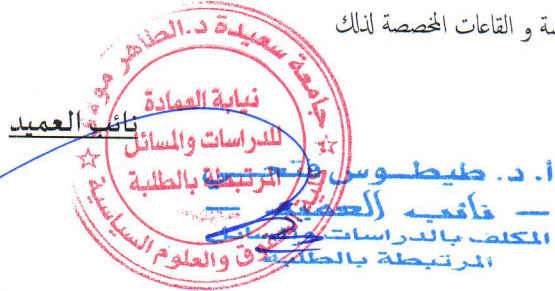 ة و القاعات المخصصة لذلك
نائب العميد
جامعة سعيدة د.الطاهر
نيابة العمادة
للدراسات والمسائل
المرتبطة بالطلبة
والعلوم السياسية
أ. د. طيطوس فتحي
— نائب العميد —
المكلف بالدراسات والمسائل
المرتبطة بالطلبة